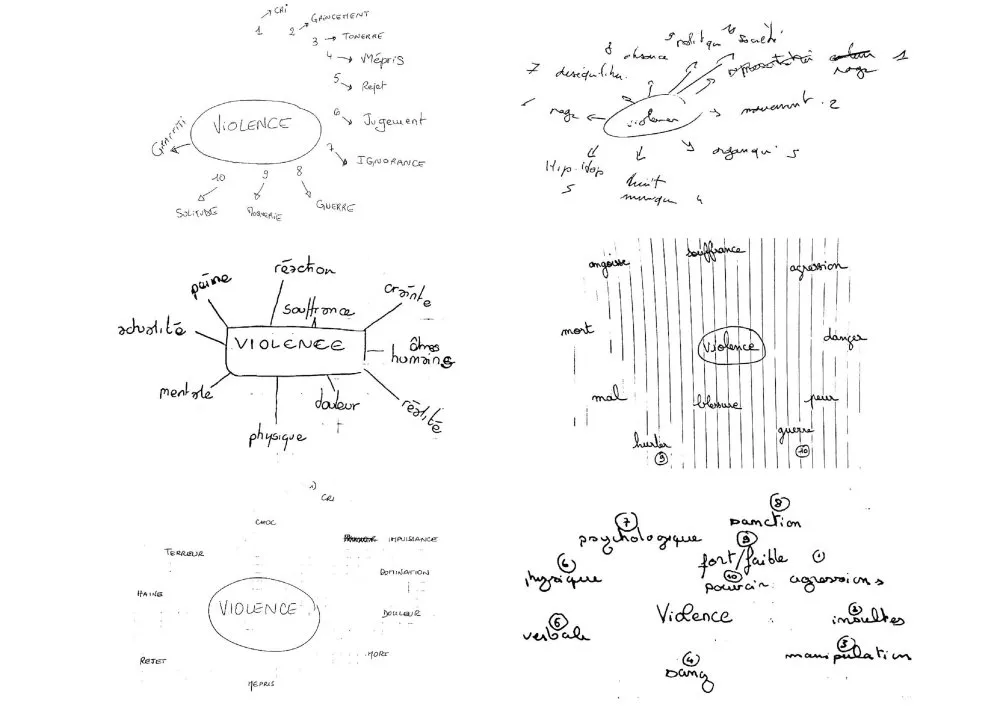 CRI
1
2 GRINCEMENT
3 TONERRE
4 MÉPRIS
5 Rejet
6 Jugement
7 IGNORANCE
8 GUERRE
9
10 SOLITUDE
GRAFFITI
VIOLENCE
8 absence
9 politique
10 société
7
1
rage
mouvement . 2
rage
violence
5
4
réaction
peine
souffrance
crainte
actualité
VIOLENCE
êtres
humains
mentale
douleur
réalité
physique
souffrance
angoisse
agression
mort
violence
danger
mal
blessure
peur
hurler
9
guerre
10
1)
CRI
CHOC
IMPUISSANCE
TERREUR
DOMINATION
HAINE
VIOLENCE
DOULEUR
REJET
MORT
MÉPRIS
8
sanction
7
psychologique
9
fort/faible
6
physique
10
pouvoir
1
agressions
Violence
2
insultes
5
verbale
3
manipulation
4
sang